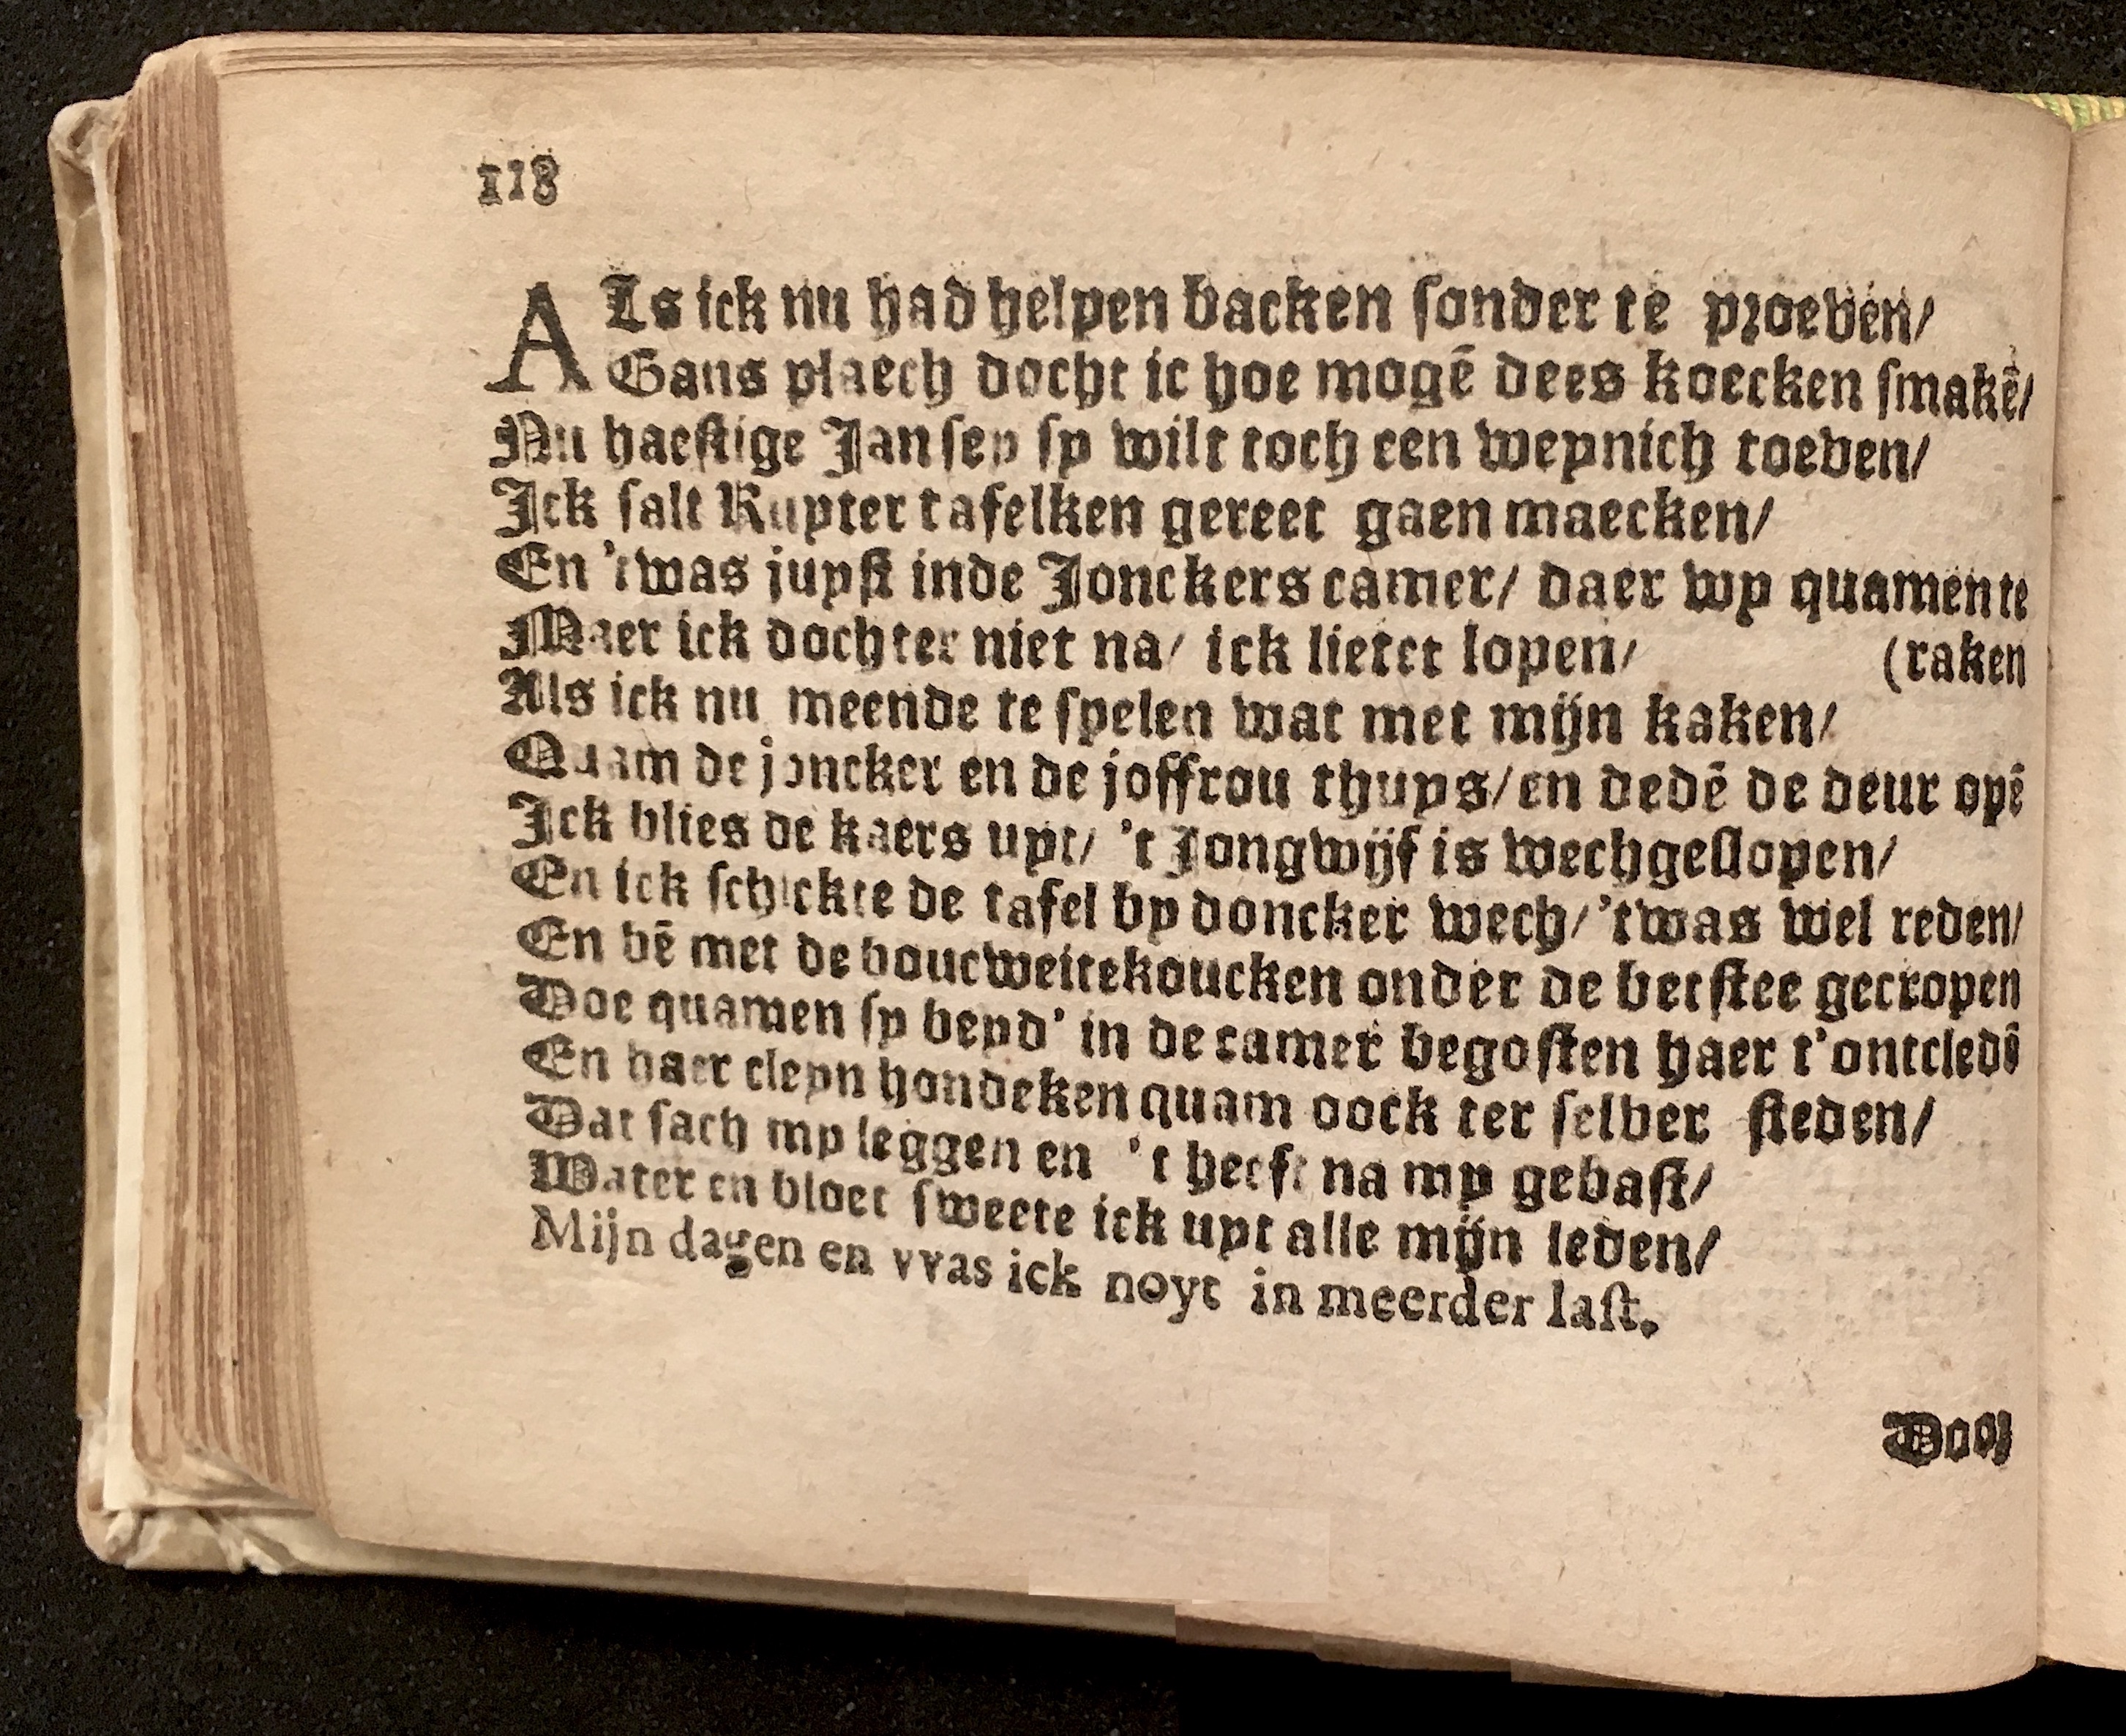 118
ALs ick nu had helpen backen sonder te proeven/
Gans plaech docht ic hoe mogē dees koecken smakē/
Nu haestige Jan sey sy wilt toch een weynich toeven/
Ick salt Ruyter tafelken gereet gaen maecken/
En 'twas juyst inde Jonckers camer/ daer wy quamen te
Maer ick dochter niet na/ ick lietet lopen/ (raken
Als ick nu meende te spelen wat met mijn kaken/
Quam de joncker en de joffrou thuys/en dedē de deur opē
Ick blies de kaers uyt/ 't Jongwijf is wechgeslopen/
En ick schickte de tafel by doncker wech/'twas wel reden/
En bē met de boucweitekoucken onder de betstee gecropen
Doe quamen sy beyd' in de camer begosten haer t'ontcledē
En haer cleyn hondeken quam oock ter selver steden/
Dat sach my leggen en 't heeft na my gebast/
Water en bloet sweete ick uyt alle mijn leden/
Mijn dagen en vvas ick noyt in meerder last.
Doɀ